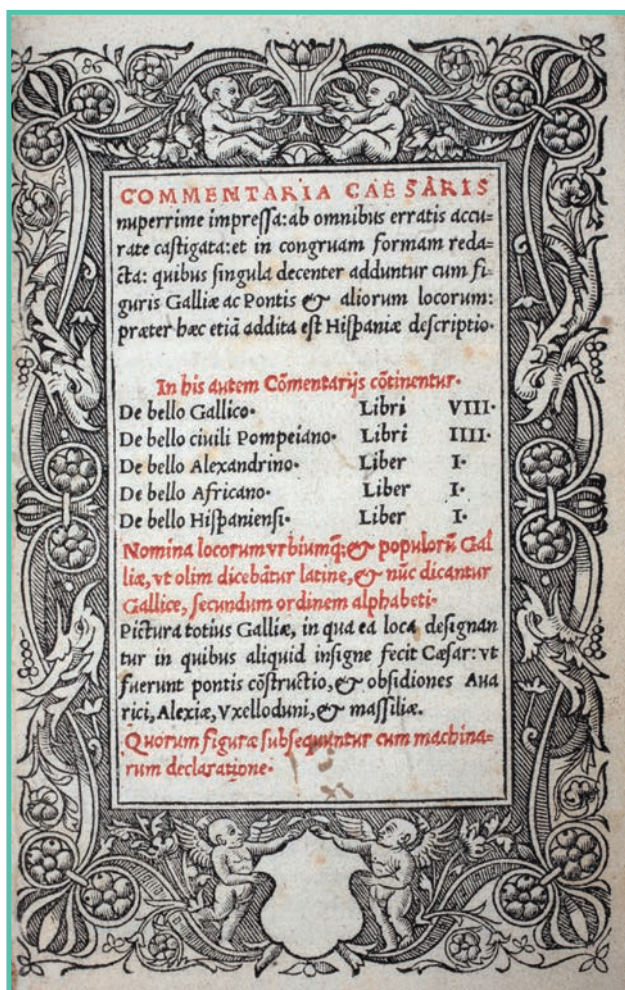 COMMENTARIA CAESARIS
nuperrime impreſſa: ab omnibus erratis accu⸗
rate caſtigata: et in congruam formam reda⸗
cta: quibus ſingula decenter adduntur cum fi⸗
guris Galliæ ac Pontis & aliorum locorum:
præter hæc etiã addita eſt Hiſpaniæ deſcriptio.
In his autem Cõmentarijs cõtinentur.
De bello Gallico. Libri VIII.
De bello ciuili Pompeiano. Libri IIII.
De bello Alexandrino. Liber I.
De bello Africano. Liber I.
De bello Hiſpanienſi. Liber I.
Nomina locorum vrbiumq̃: & populorũ Gal
liæ, vt olim dicebãtur latine, & nũc dicantur
Gallice, ſecundum ordinem alphabeti.
Pictura totius Galliæ, in qua ea loca deſignan
tur in quibus aliquid inſigne fecit Cæſar: vt
fuerunt pontis cõſtructio, & obſidiones Aua
rici, Alexiæ, Vxelloduni, & maſſiliæ.
Quorum figuræ ſubſequuntur cum machina⸗
rum declaratione.